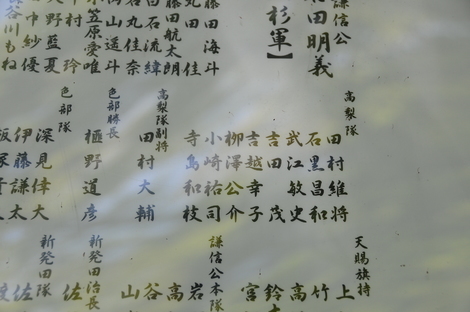 謙信公
田明義
杉軍】
藤田海斗
丸田佳
藤田航太朗
白石流緯
石丸佳奈
山遥斗
笠原愛唯
村玲
野藍夏
中紗優
谷川もね
高梨隊
田村維将
石黒昌和
武江敏史
吉田茂
吉越幸子
柳澤公介
小崎祐司
寺島和枝
高梨隊副将
田村大輔
色部勝長
樋野道彦
色部隊
深見倖大
伊藤謙太
天賜旗持
上
竹
高
鈴木
宮
謙信公本隊
岩
高
谷
山
新発田治長
佐
新発田隊
佐